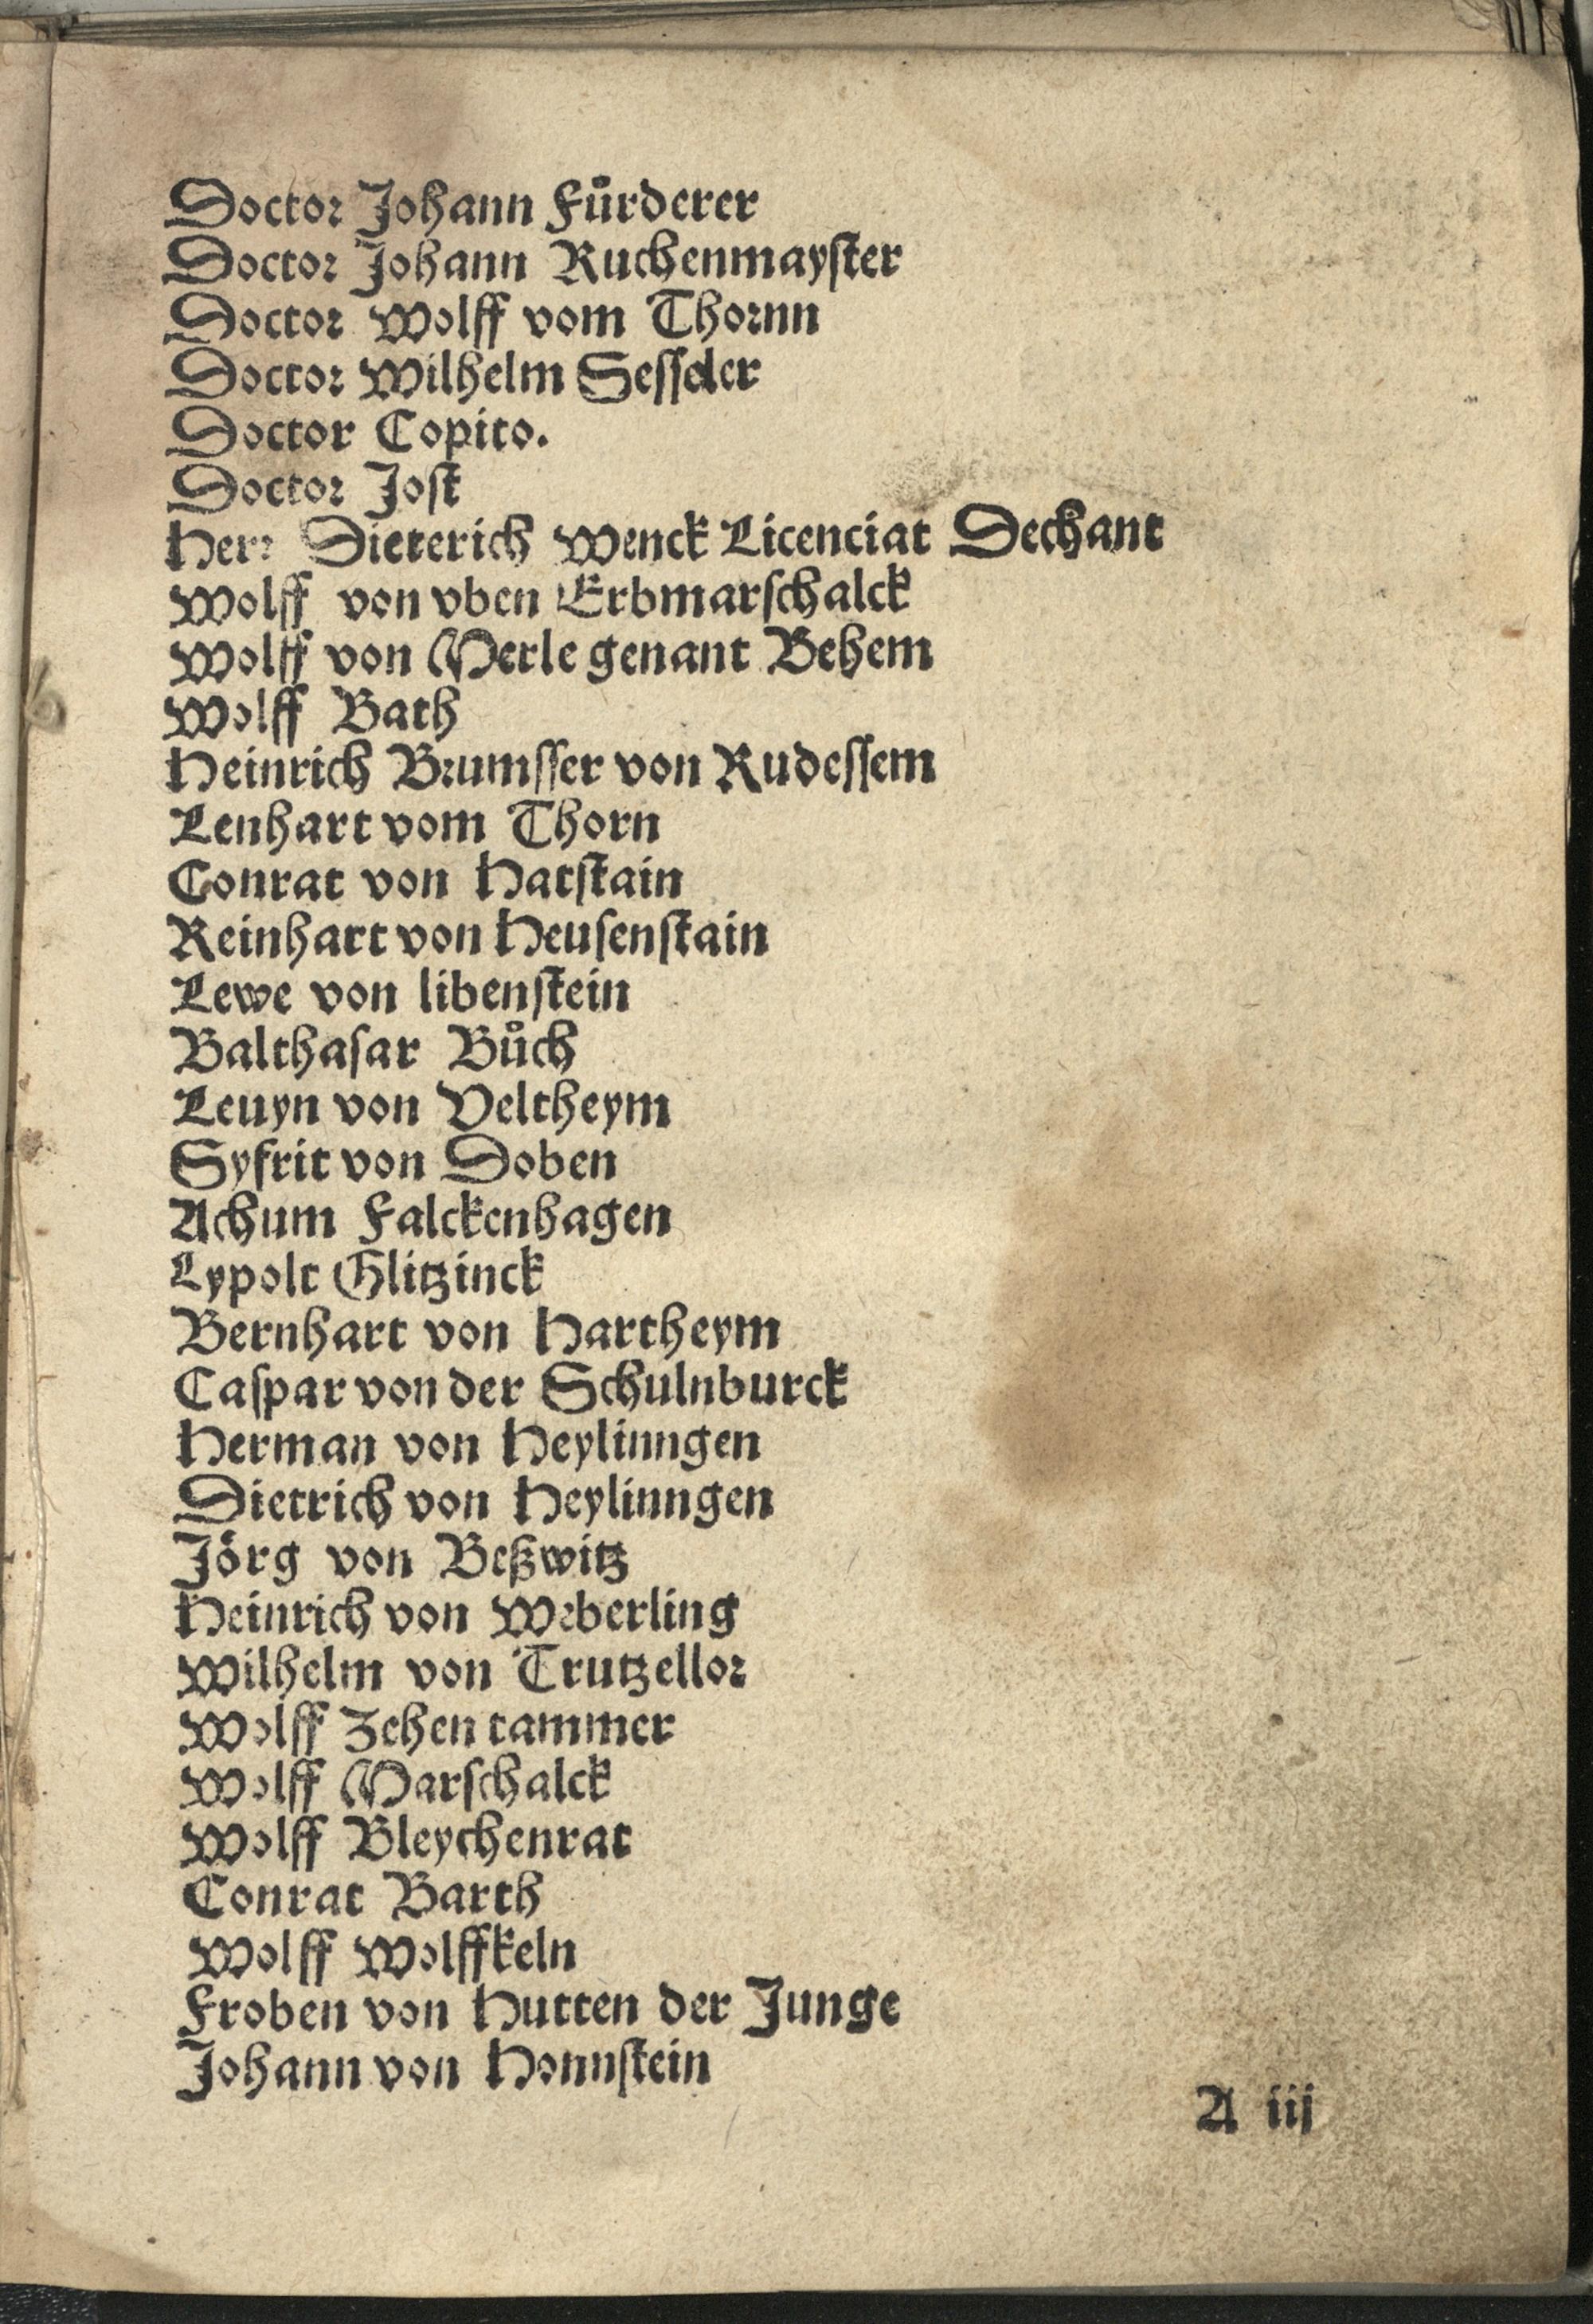 Doctor Johann Fůrderer
Doctor Johann Ruchenmayster
Doctor Wolff vom Thornn
Doctor Wilhelm Sesseler
Doctor Copito.
Doctor Jost
Herr Dieterich Wenck Licenciat Dechant
Wolff von vben Erbmarschalck
Wolff von Merle genant Behem
Wolff Bath
Heinrich Brumsser von Rudessem
Lenhart vom Thorn
Conrat von Hatstain
Reinhart von Heusenstain
Lewe von libenstein
Balthasar Bůch
Leuyn von Veltheym
Syfrit von Doben
Achum Falckenhagen
Lypolt Glitzinck
Bernhart von Hartheym
Caspar von der Schulnburck
Herman von Heylinngen
Dietrich von Heylinngen
Jörg von Beßwitz
Heinrich von Weberling
Wilhelm von Trutzellor
Wolff Zehen tammer
Wolff Marschalck
Wolff Bleychenrat
Conrat Barth
Wolff Wolffkeln
Froben von Hutten der Junge
Johann von Honnstein
A iij